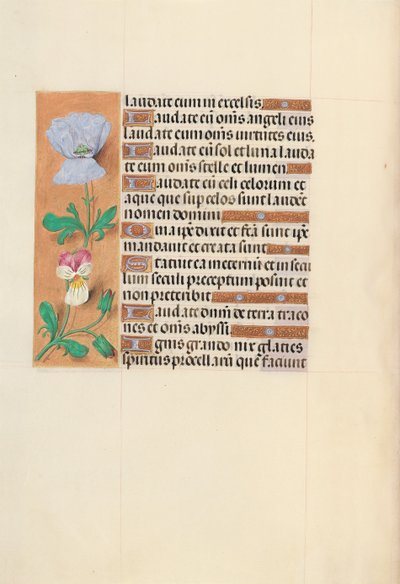 laudate eum in excelsis
Laudate eū om̄s angeli eius
laudate eum om̄s uirtutes eius.
Laudate eū sol et luna lauda
te eum om̄s stelle et lumen
Laudate eū celi celorum et
aque que sup celos sunt laudēt
nomen domini
Quia ip̄e dixit et fc̄ā sunt ip̄e
mandauit et creata sunt
Statuit ea in eternū et in secu
lum seculi preceptum posuit et
non preteribit
Laudate dn̄m de terra draco
nes et om̄s abyssi
Ignis grando nix glacies
spiritus procellarū que faciunt